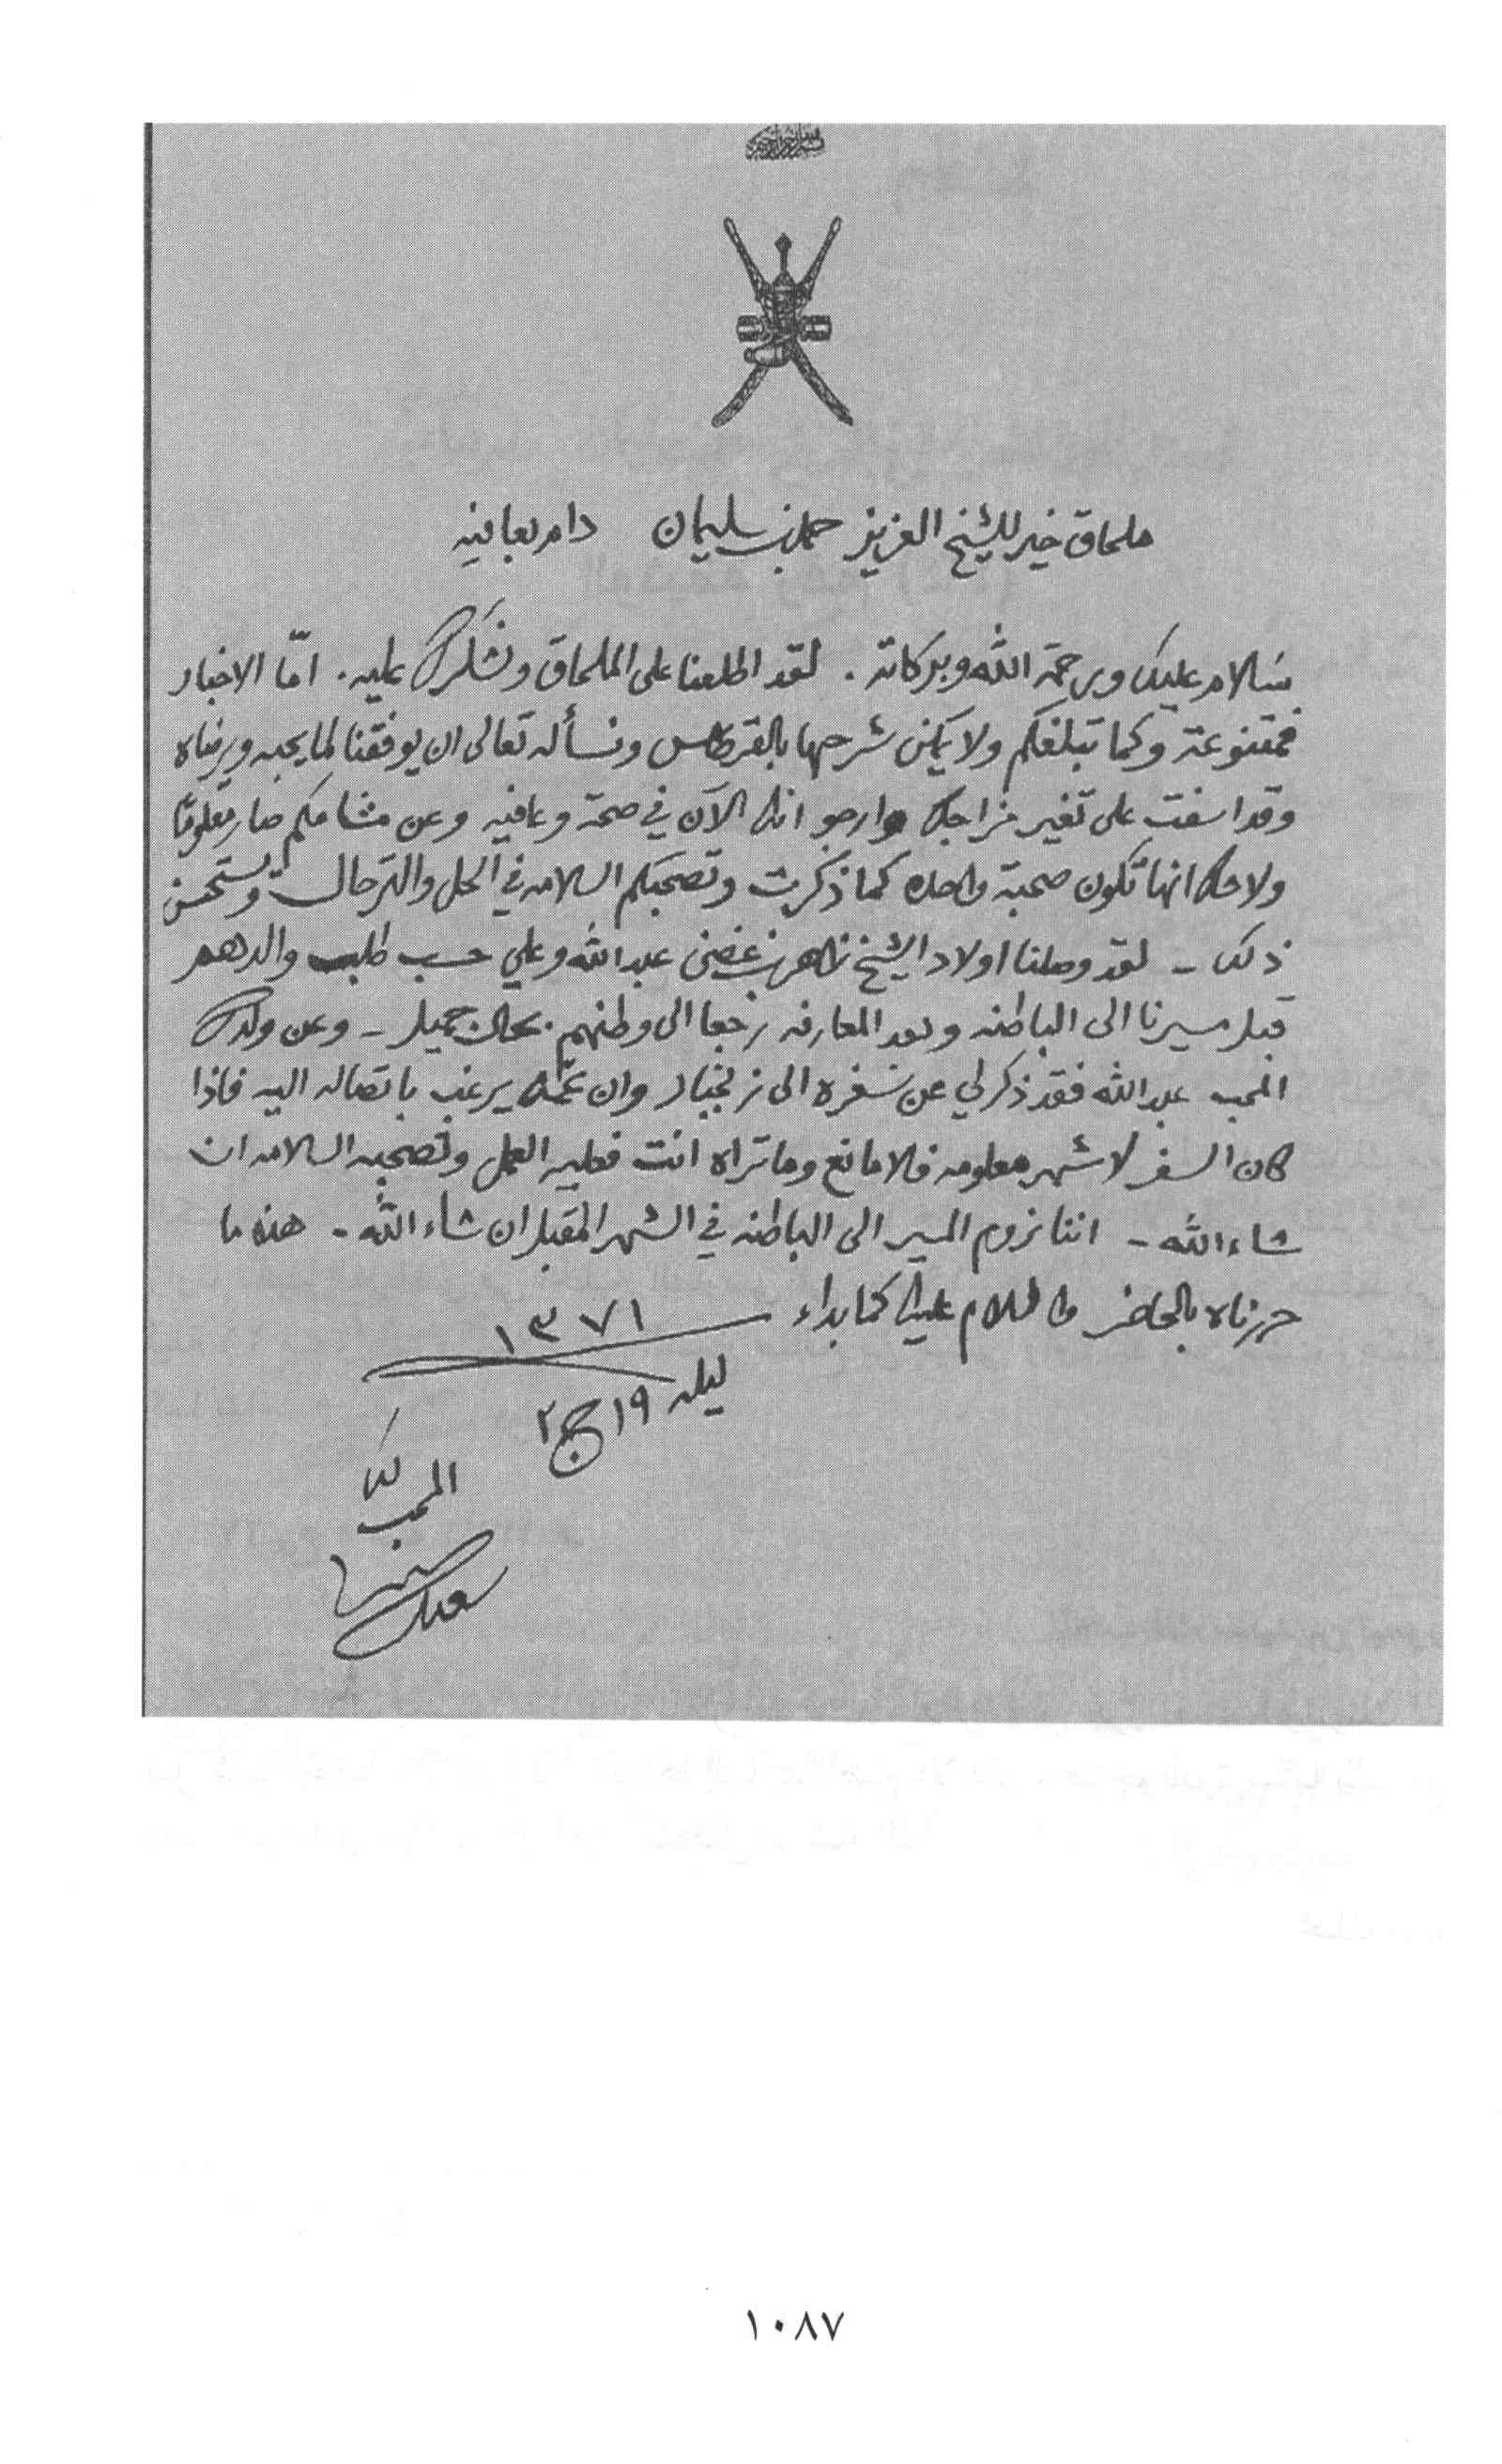 ملحاق خير للشيخ العزيز حمد بن سليمان دام بعافيه
سلام عليك ورحمة الله وبركاته. لقد اطلعنا على الملحاق ونشكرك عليه. امّا الاخبار
فمتنوعة وكما تبلغكم ولا يمكن شرحها بالقرطاس ونسأله تعالى ان يوفقنا لما يحبه ويرضاه
وقد اسفت على تغير مزاجك وارجو انك الآن في صحة وعافيه وعن مشاكم صار معلومًا
ولا شك انها تكون صحبة واحده كما ذكرت وتصحبكم السلامه في الحل والترحال ونستحسن
ذلك - لقد وصلنا اولاد الشيخ ظاهر بن غصن عبدالله وعلي حسب طلب والدهم
قبل مسيرنا الى الباطنه وبعد المعارفه رجعا الى وطنهم بحال جميل - وعن ولدك
المحب عبدالله فقد ذكر لي عن سفره الى زنجبار وان عمّه يرغب باتصاله اليه فاذا
كان السفر لاشهر معلومه فلا مانع وما تراه انت فعليه العمل وتصحبه السلامه ان
شاء الله - اننا نروم المسير الى الباطنه في الشهر المقبل ان شاء الله - هذه ما
حررناه بالحاضر والسلام عليك كما بداء ١٣٧١
ليله ١٩ ج ٢
المحب لك
١٠٨٧